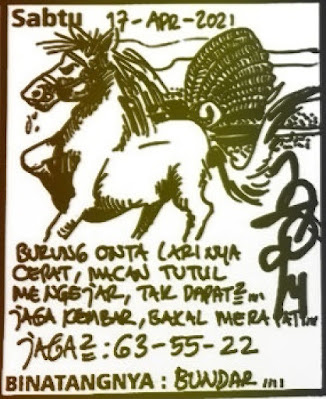 Sabtu 17-APR-2021
BURUNG ONTA LARINYA
CEPAT, MACAN TUTUL
MENGEJAR, TAK DAPAT2 !!!
JAGA KEMBAR, BAKAL MERAPAT !!!
JAGA2 : 63-55-22
BINATANGNYA : BUNDAR !!!